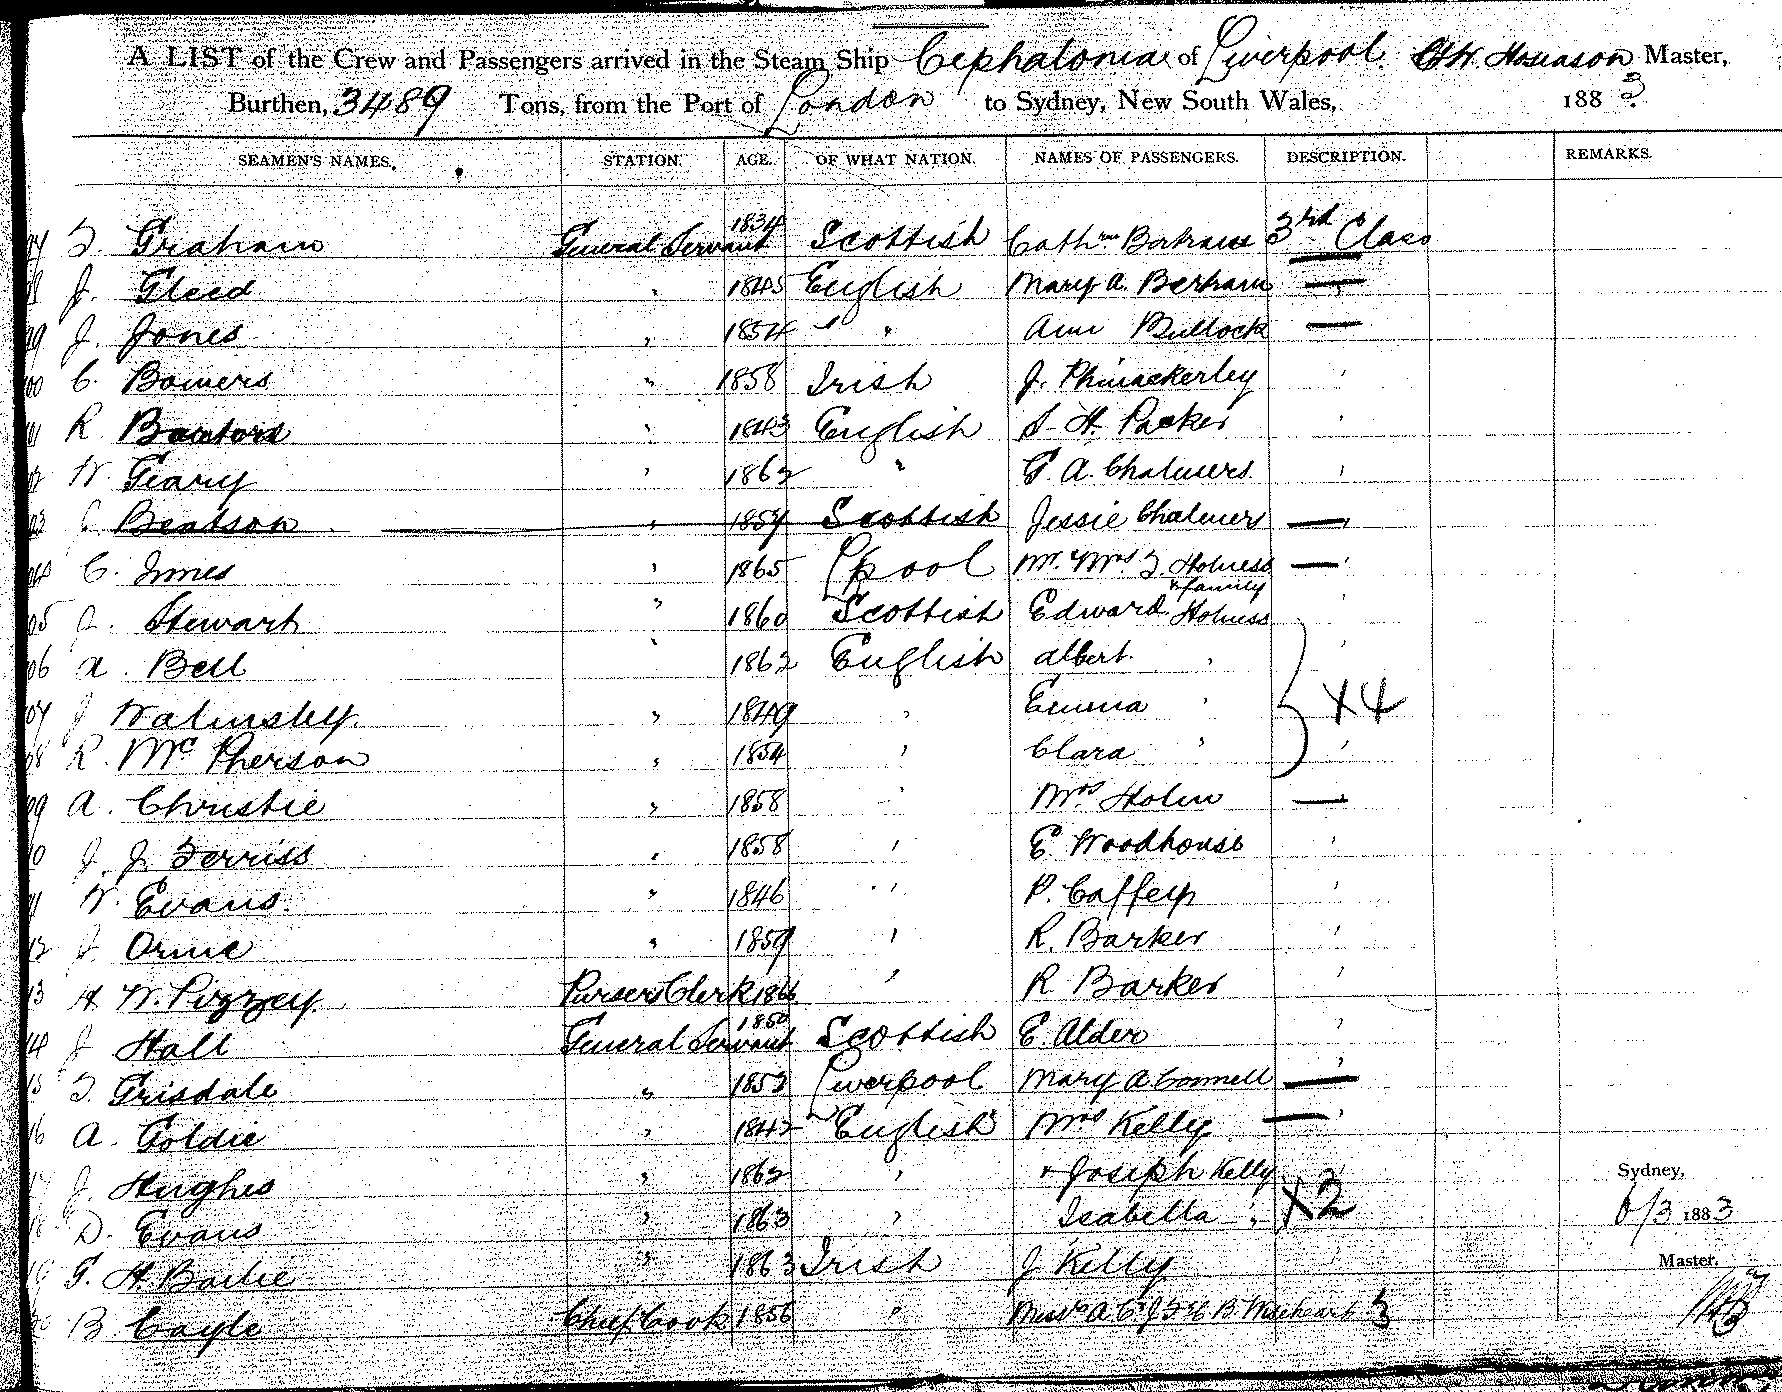 A LIST of the Crew and Passengers arrived in the Steam Ship Cephalonia of Liverpool. Master,
Burthen, 3489 Tons, from the Port of London to Sydney, New South Wales, 1883.
SEAMEN'S NAMES. STATION. AGE. OF WHAT NATION. NAMES OF PASSENGERS. DESCRIPTION. REMARKS.
97 T. Graham General Servant 1834 Scottish Cathne Bertram 3rd Class
98 J. Gleed " 1845 English Mary A. Bertram —
99 J. Jones " 1854 " Ann Bullock —
100 C. Bowers " 1858 Irish J. "
101 R 1843 English S. H. Packer "
102 W. Geary " 1862 " G. A. Chalmers "
103 Beatson " 1857 Scottish Jessie Chalmers —"
104 C. Innes " 1865 Lpool Mr. & Mrs T. Holness —"
& family
105 J. Stewart " 1860 Scottish Edward Holness "
106 A. Bell " 1862 English Albert "
107 J Walmsley. " 1849 " Emma " X4
108 R. Mc Pherson " 1854 " Clara " "
109 A. Christie " 1858 " Mrs Holm —
110 J. J. Ferriss " 1858 " E. Woodhouse "
111 W. Evans. " 1846 " P. Caffery "
112 J. Orme " 1859 " R. Barker "
113 H. W. Pizzey. Pursers Clerk 1866 " R Barker "
114 J Hall General Servant 1850 Scottish E. Alder "
115 T. Grisdale " 1852 Liverpool Mary A Connell —"
116 A. Goldie " 1842 English Mrs Kelly —"
117 J. Hughes " 1862 " & Joseph Kelly
Sydney,
118 D. Evans " 1863 " Isabella " X2
6/3 1883
119 G. H. Bailie " 1863 Irish J Kelly
Master.
120 B. Coyle Chief Cook 1856 "